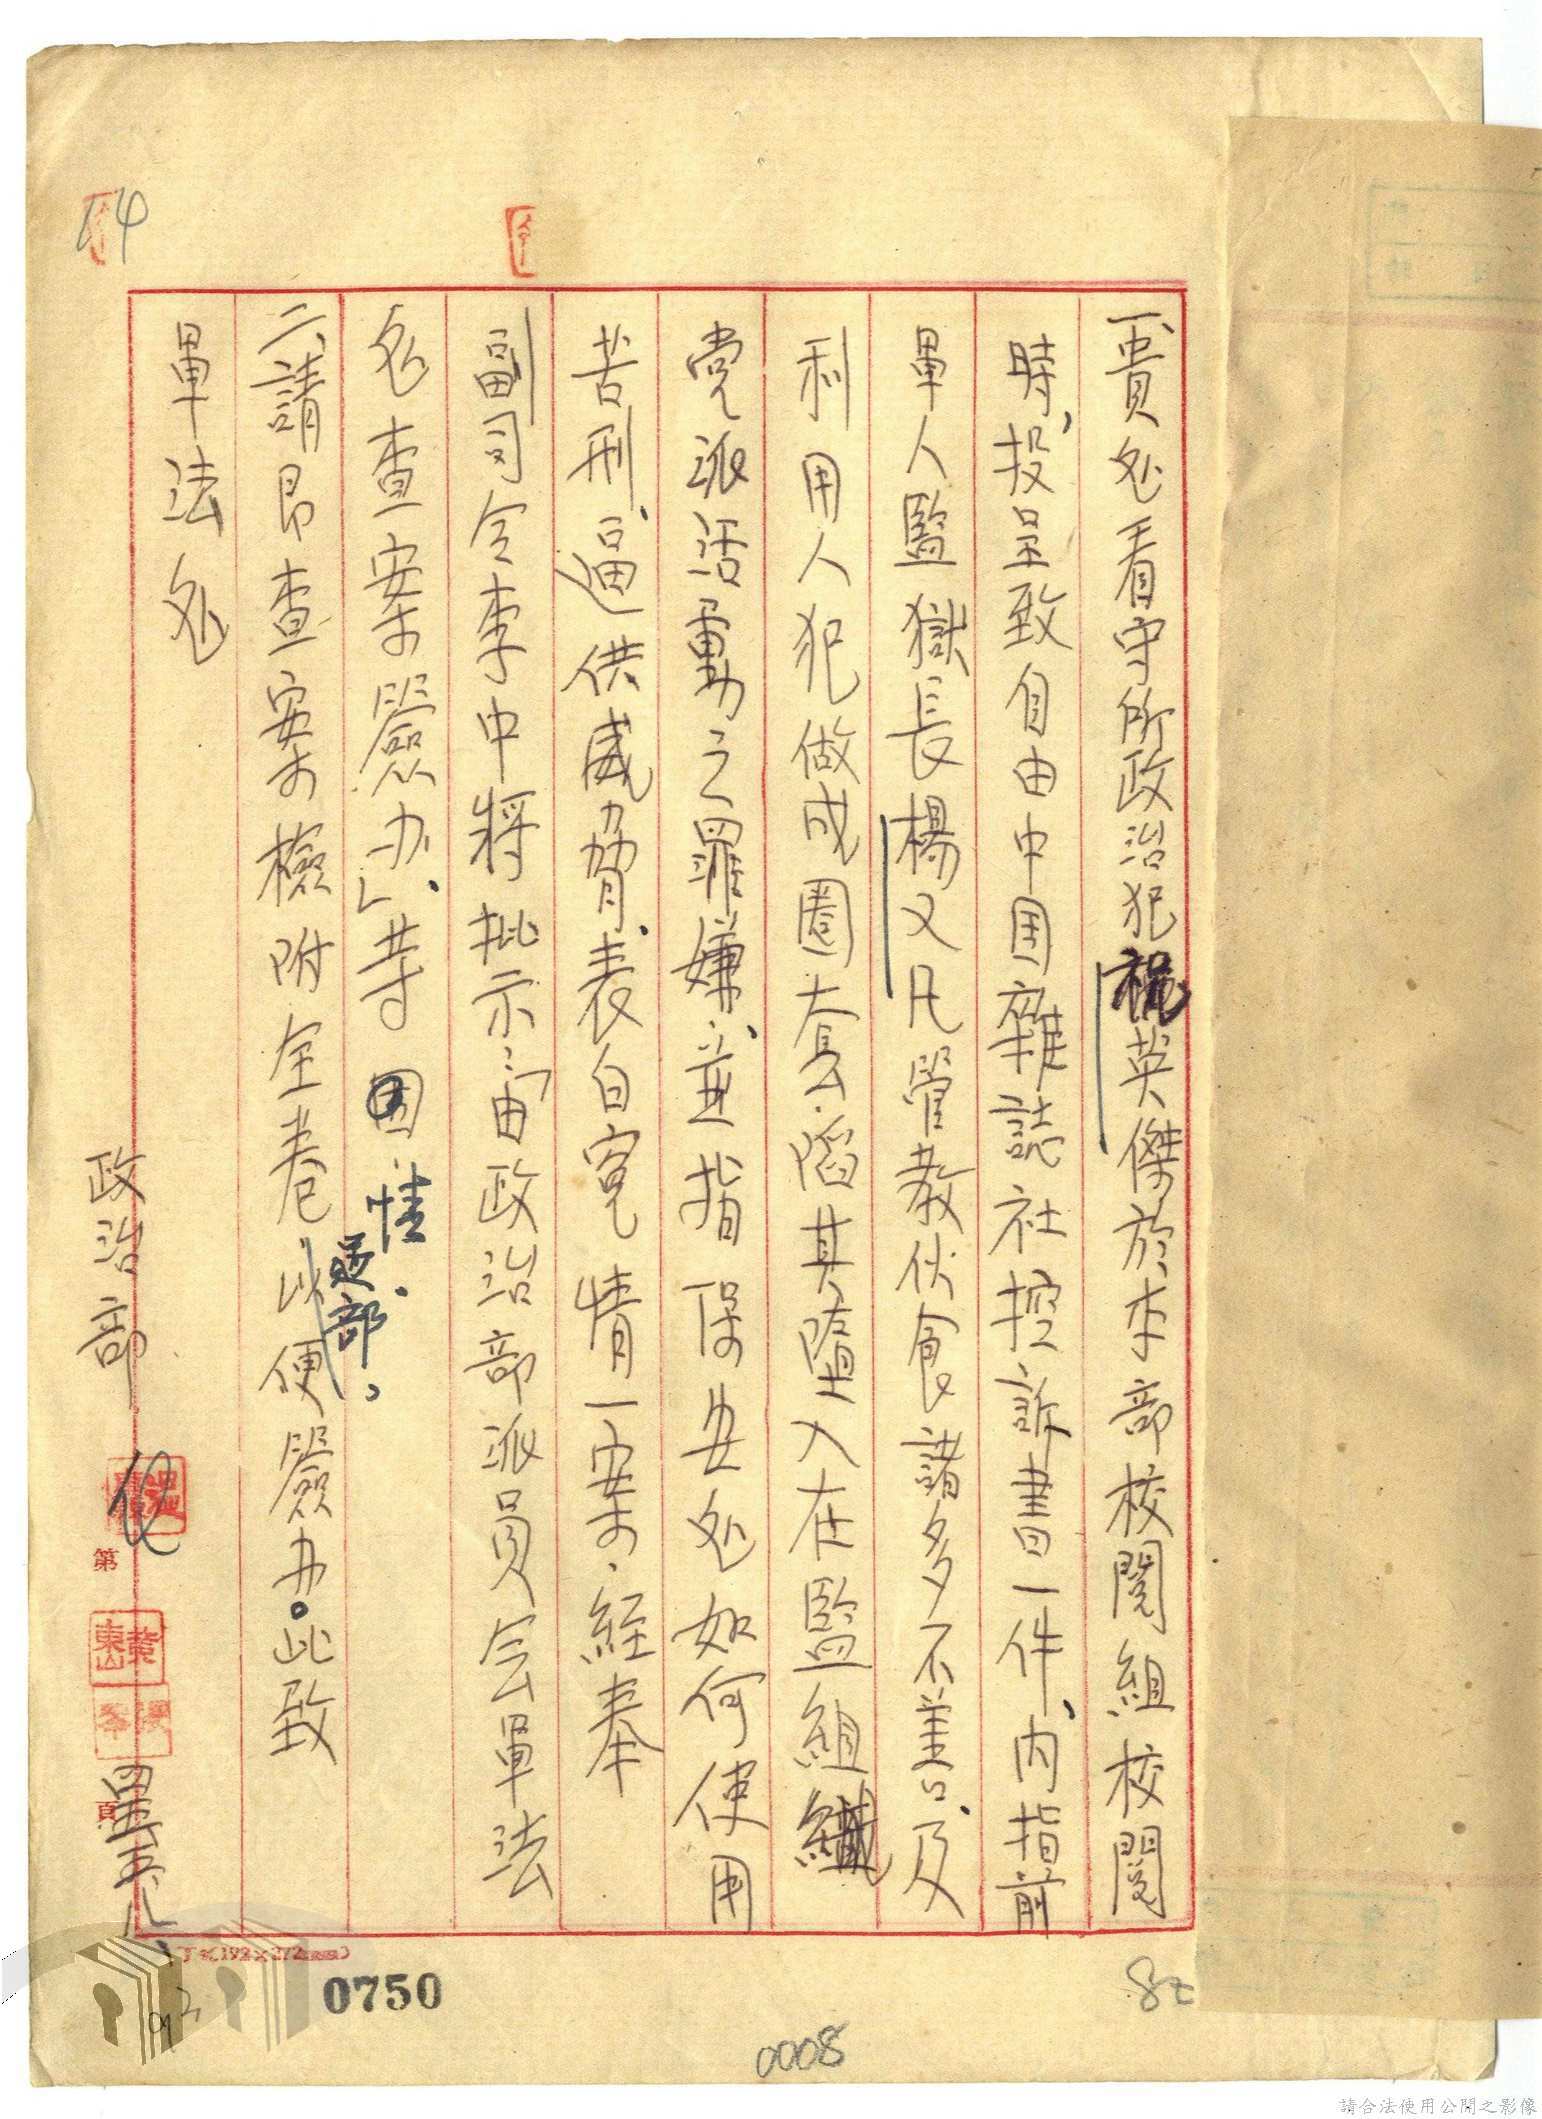 一、貴処看守所政治犯祝英傑於本部校閱組校閱
時、投呈致自由中国雜誌社控訴書一件、内指前
軍人監獄長楊又凡管教伙食諸多不善、及
利用人犯做成圈套、陷其墮入在監組織
党派活動之罪嫌、並指保安処如何使用
苦刑、逼供威脅、表白寃情一案、經奉
副司令李中將批示：「由政治部派員会軍法
処查案簽办」、等因。情
逕部、
二、請即查案檢附全卷以便簽办。此致
軍法処
政治部
第 頁
黄東山
0750
0008
82
14
請合法使用公開之影像